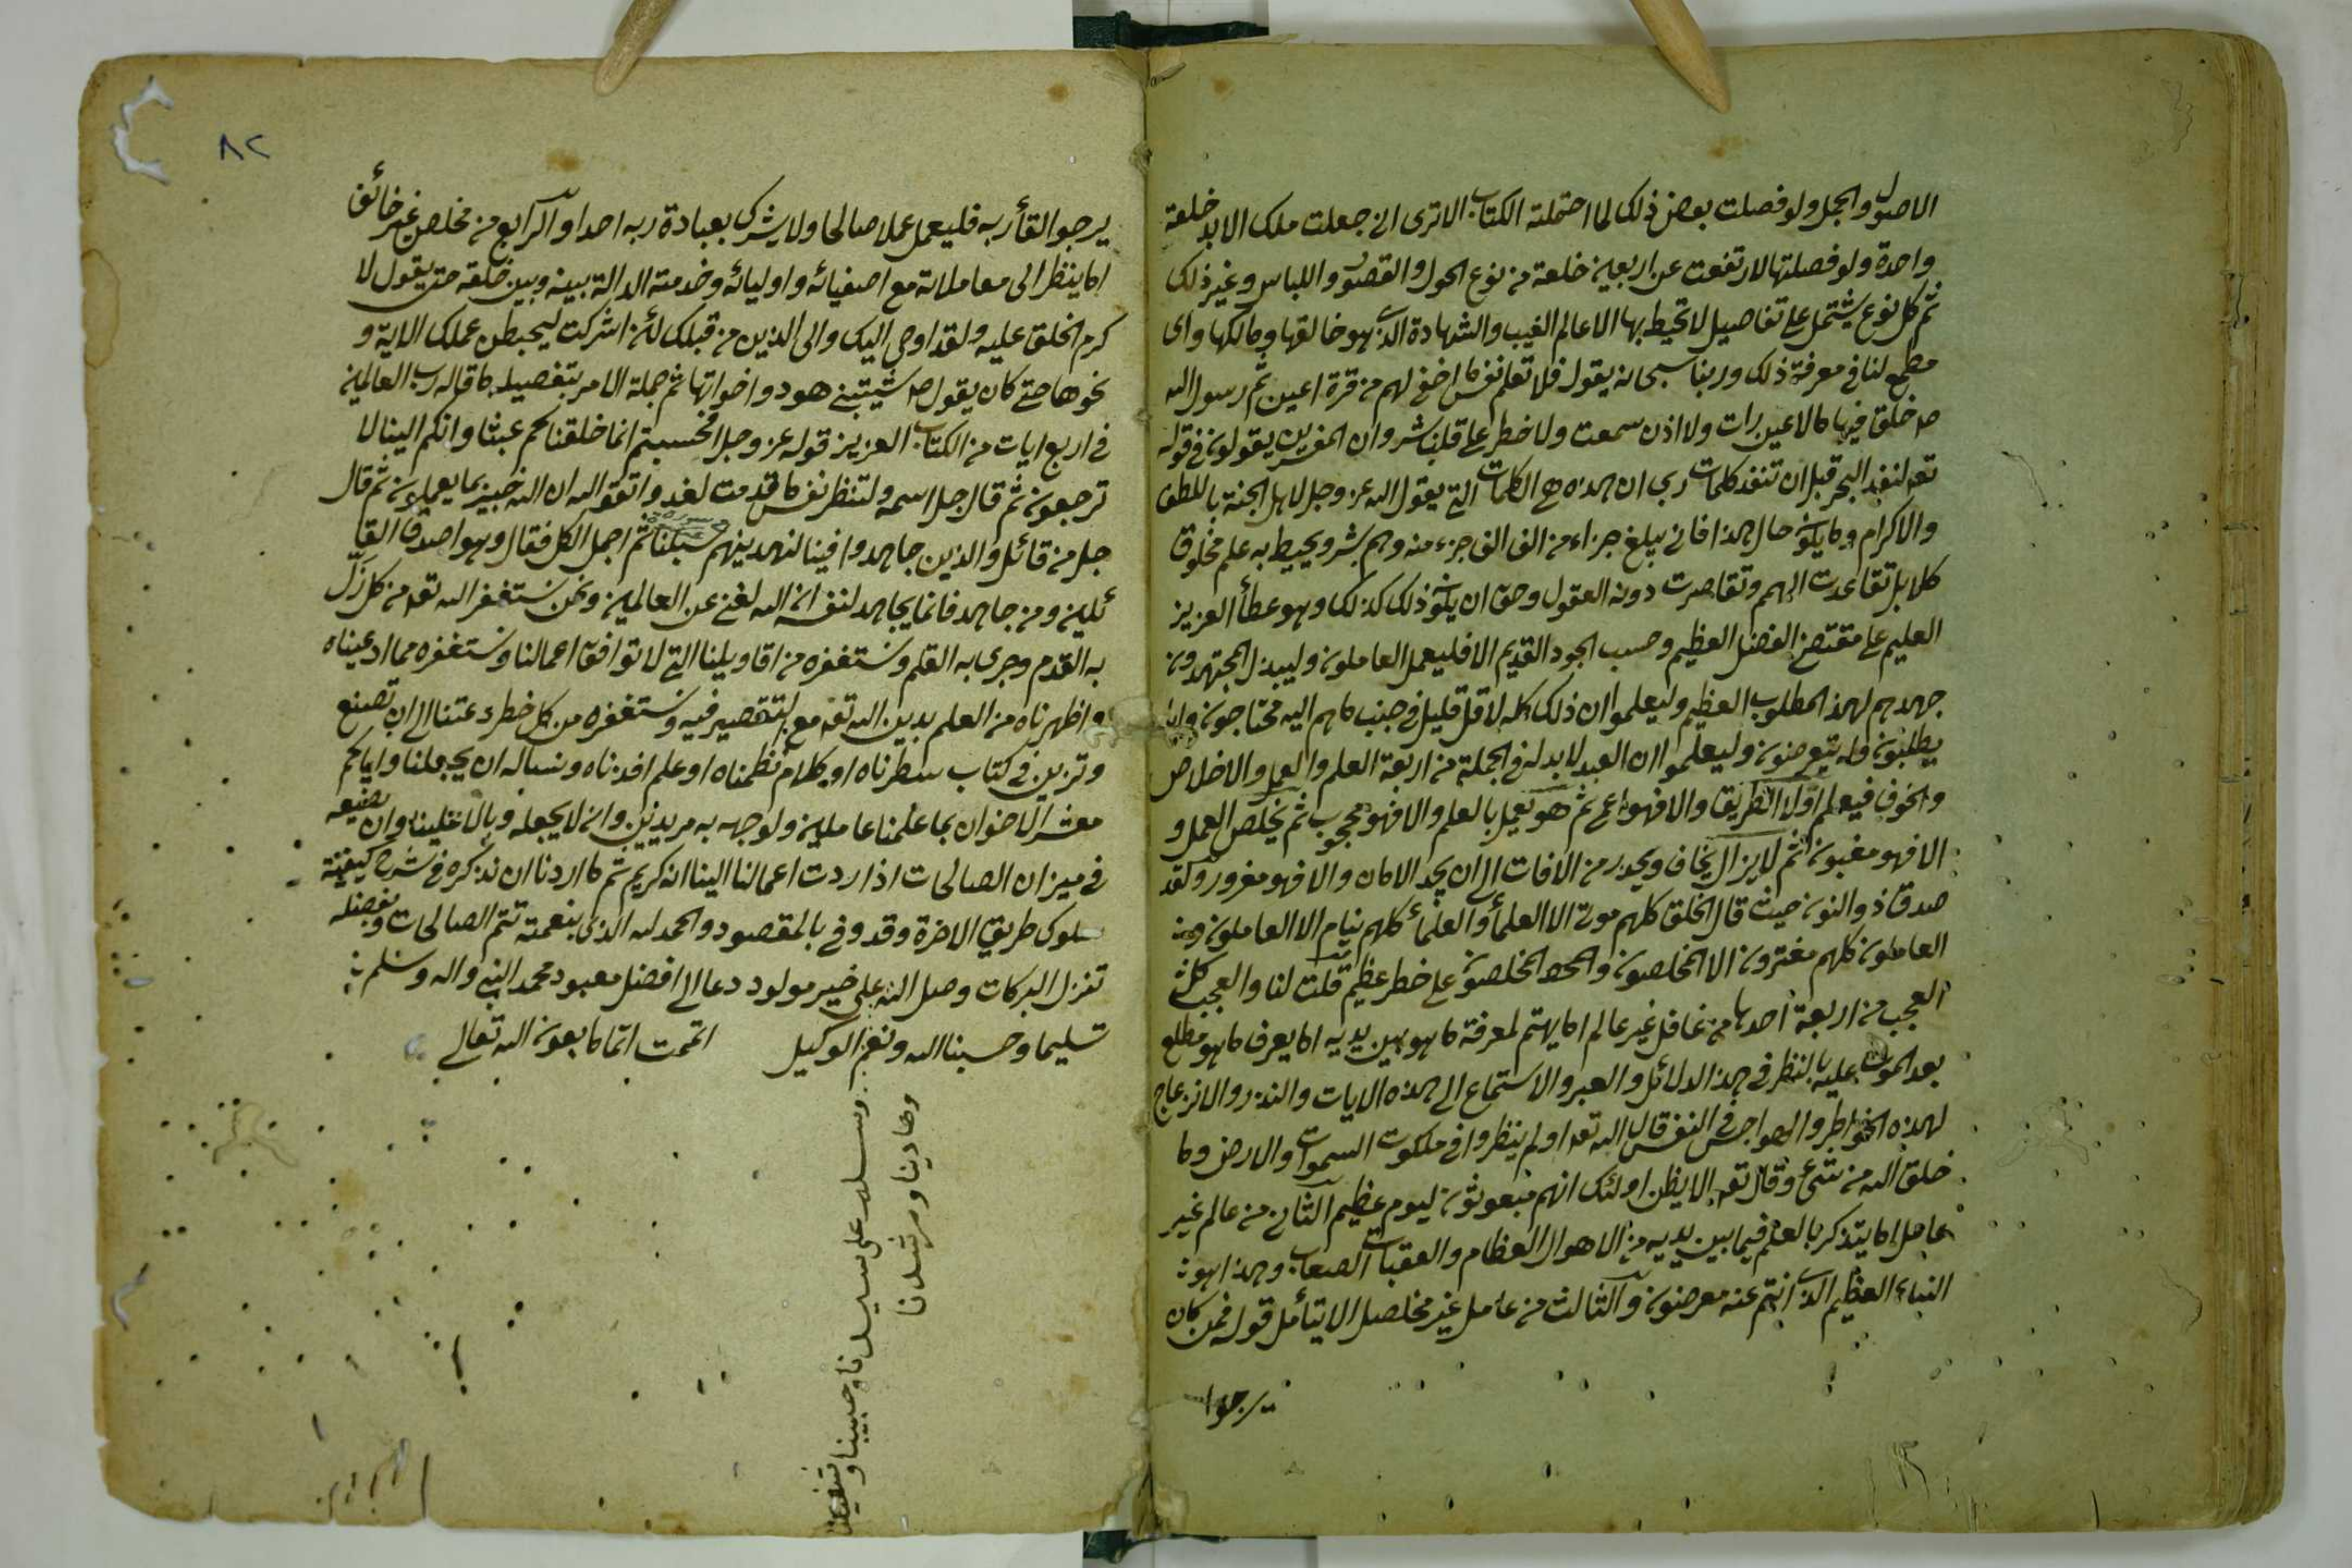 الاصول والجمل ولو فصلت بعض ذلك لما احتملته الكتاب الا ترى انى جعلت ملك الابد خلعة
واحدة ولو فصلتها لارتفعت عن اربعين خلعة من نوع الحول والقصور واللباس وغير ذلك
ثم كل نوع يشتمل على تفاصيل لا تحيط بها الا عالم الغيب والشهادة الذى هو خالقها ومالكها واى
مطمع لنا فى معرفة ذلك وربنا سبحانه يقول فلا تعلم نفس ما اخفى لهم من قرة اعين ثم رسول الله
صم خلق فيها ما لا عين رات ولا اذن سمعت ولا خطر على قلب بشر وان المفسرين يقولون فى قوله
تعه لنفد البحر قبل ان تنفد كلمات ربى ان هذه هى الكلمات التى يقول الله عز وجل لاهل الجنة باللطف
والاكرام وما يكون حال هذا فانى يبلغ جزاء من الف الف جزء منه وهم بشر ويحيط به علم مخلوق
كلا بل تقاعدت الهمم وتقاصرت دونه العقول وحق ان يكون ذلك كذلك وهو عطأ العزيز
العليم على مقتضى الفضل العظيم وحسب الجود القديم الا فليعمل العاملون وليبذل المجتهدون
جهدهم لهذا المطلوب العظيم وليعلموا ان ذلك كله لاقل قليل فى جنب ما هم اليه محتاجون واياه
يطلبون وله يتعرضون وليعلموا ان العبد لا بد له فى الجملة من اربعة العلم والعمل والاخلاص
والخوف فيعلم اولا الطريق والا فهو اعمى ثم هو يعمل بالعلم والا فهو محجوب ثم يخلص العمل و
الا فهو مغبون ثم لا يزال يخاف ويحذر من الافات الى ان يجد الامان والا فهو مغرور ولقد
صدق ذو النون حيث قال الخلق كلهم موتى الا العلمأ والعلمأ كلهم نيام الا العاملون و
العاملون كلهم مغترون الا المخلصون والمخلصون على خطر عظيم قلت لنا والعجب كل
العجب من اربعة احدها من غافل غير عالم اما يهتم لمعرفة ما هو بين يديه اما يعرف ما هو مطلع
بعد الموت عليه بالنظر فى هذا الدلائل والعبر والاستماع الى هذه الايات والنذر والانزعاج
لهذه الخواطر والهواجس فى النفس قال الله تعه اولم ينظروا فى ملكوت السموات والارض وما
خلق الله من شئ وقال تعه الا يظن اولئك انهم مبعوثون ليوم عظيم الثانى من عالم غير
عامل اما يتذكر بالعلم فيما بين يديه من الاهوال العظام والعقبات الصعاب وهذا هو
النباء العظيم الذى انتم عنه معرضون والثالث من عامل غير مخلص الا يتأمل قوله فمن كان
يرجوا
٨٢
يرجو القأ ربه فليعمل عملا صالحا ولا يشرك بعبادة ربه احدا والرابع من مخلص غير خائف
اما ينظر الى معاملاته مع اصفيائه واوليائه وخدمته الدالة بينه وبين خلقه حتى يقول لا
كرم الخلق عليه ولقد اوحى اليك والى الذين من قبلك لئن اشركت ليحبطن عملك الاية و
نحوها حتى كان يقول صم شيبتنى هود واخواتها ثم جملة الامر بتفصيله ما قاله رب العالمين
فى اربع ايات من الكتاب العزيز قوله عز وجل افحسبتم انما خلقناكم عبثا وانكم الينا لا
ترجعون ثم قال جل اسمه ولتنظر نفس ما قدمت لغد واتقوا الله ان الله خبير بما يعملون ثم قال
جل من قائل والذين جاهدوا فينا لنهدينهم سبلنا ثم اجمل الكل فقال وهو اصدق القا
ئلين ومن جاهد فانما يجاهد لنفسه ان الله لغنى عن العالمين ونحن نستغفر الله تعه من كل زل
به القدم وجرى به القلم ونستغفره من اقاويلنا التى لا توافق اعمالنا ونستغفره مما ادعيناه
واظهرناه من العلم بدين الله تعه مع التقصير فيه ونستغفره من كل خطرة دعتنا الى ان تصنع
وتزين فى كتاب سطرناه او كلام نظمناه او علم افدناه ونساله ان يجعلنا واياكم
معشر الاخوان بما علمنا عاملين ولوجهه به مريدين وان لا يجعله وبالا علينا وان يضعه
فى ميزان الصالحات اذا ردت اعمالنا الينا انه كريم ثم ما اردنا ان نذكره فى شرح كيفية
سلوك طريق الاخرة وقد وفى بالمقصود والحمد لله الذى بنعمته تتم الصالحات وبفضله
تنزل البركات وصل الله على خير مولود دعا الى افضل معبود محمد النبى واله وسلم
تسليما وحسبنا الله ونعم الوكيل اتممت اتماما بعون الله تعالى
وسلم على سيدنا وحبيبنا وشفيعنا
وهادينا ومرشدنا